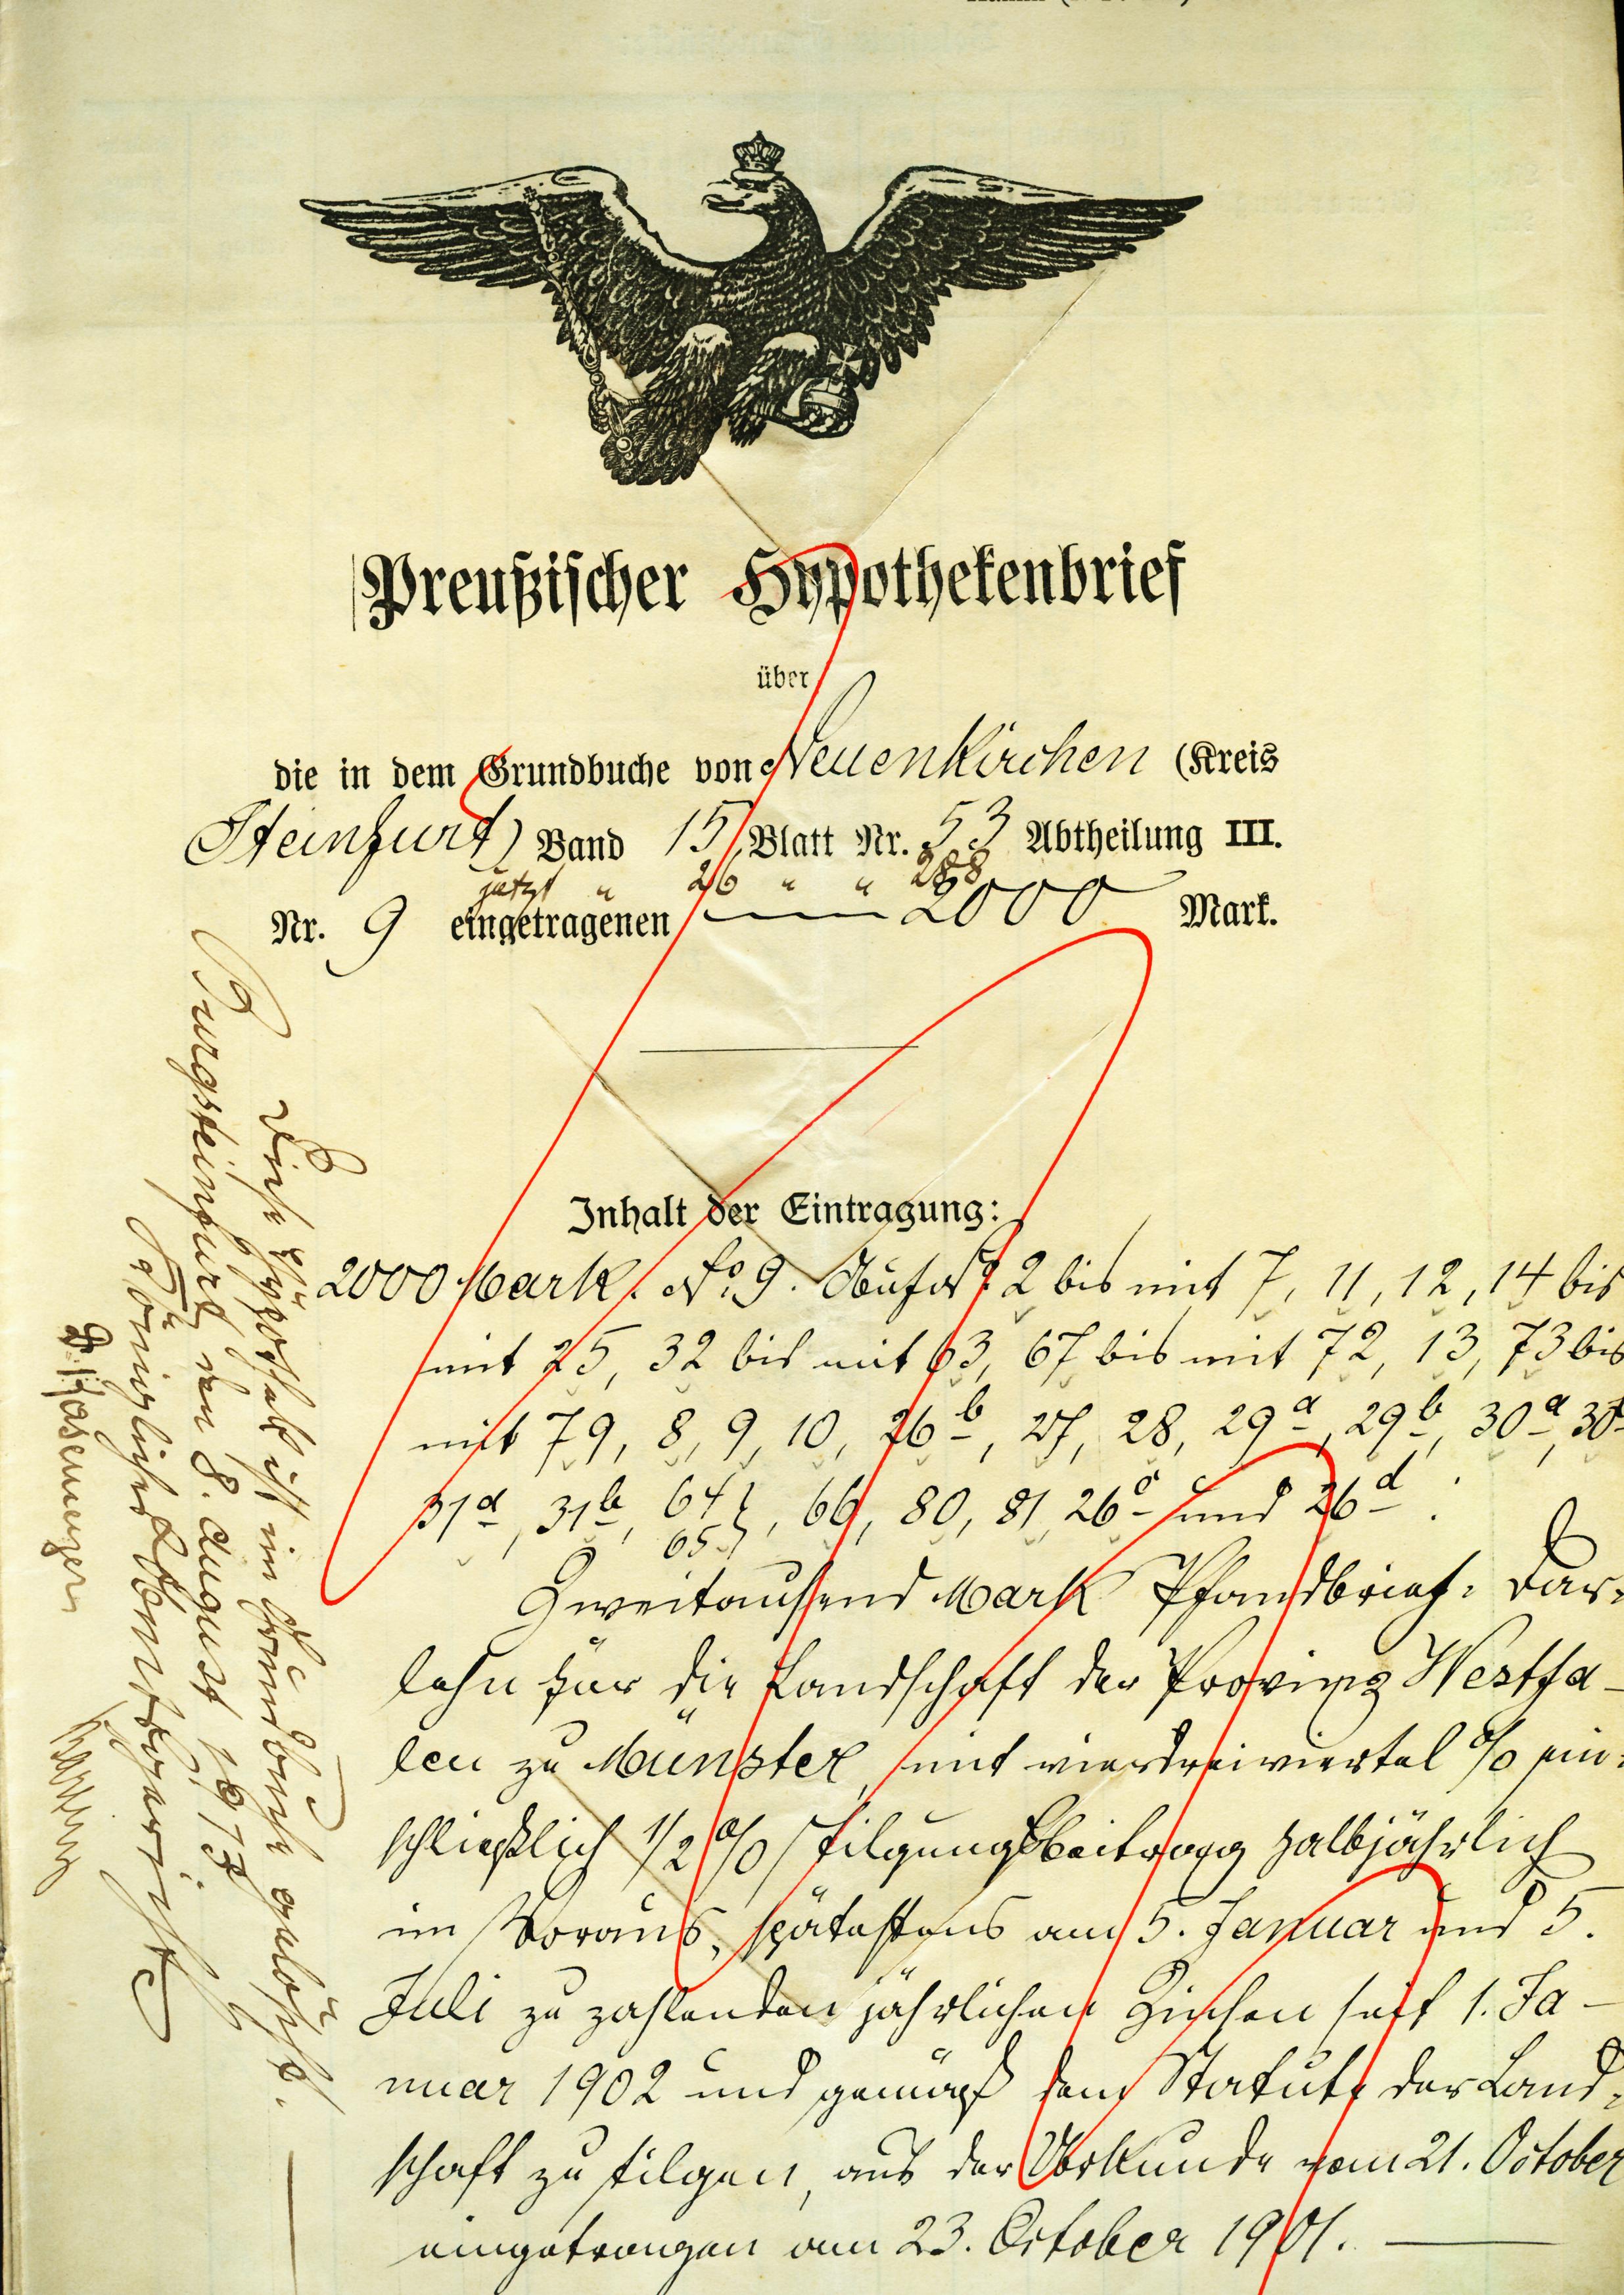 Preußischer Hypothekenbrief
über
die in dem Grundbuche von Neuenkirchen (Kreis
Steinfurt) Band 15 Blatt Nr. 53 Abtheilung III.
jetzt " 26 " " 288
Nr. 9 eingetragenen 2000 Mark.
Inhalt der Eintragung:
2000 Mark. No. 9. Auf No. 2 bis mit 7, 11, 12, 14 bis
mit 25, 32 bis mit 63, 67 bis mit 72, 13, 73 bis
mit 79, 8, 9, 10, 26b, 27, 28, 29a, 29b, 30a, 30
31a, 31b, 64, 65, 66, 80, 81, 26c und 26d.
Zweitausend Mark Pfandbrief-Dar-
lehn für die Landschaft der Provinz Westfa-
len zu Münster, mit vierdreiviertel % ein-
schließlich 1/2 % Tilgungsbeitrag halbjährlich
im Voraus, spätestens am 5. Januar und 5.
Juli zu zahlenden jährlichen Zinsen seit 1. Ja-
nuar 1902 und gemäß dem Statute der Land-
schaft zu tilgen, aus der Urkunde vom 21. October
eingetragen am 23. October 1901.
Diese Hypothek ist im Grundbuche gelöscht.
Burgsteinfurt den 8. August 1913
Königliches Amtsgericht